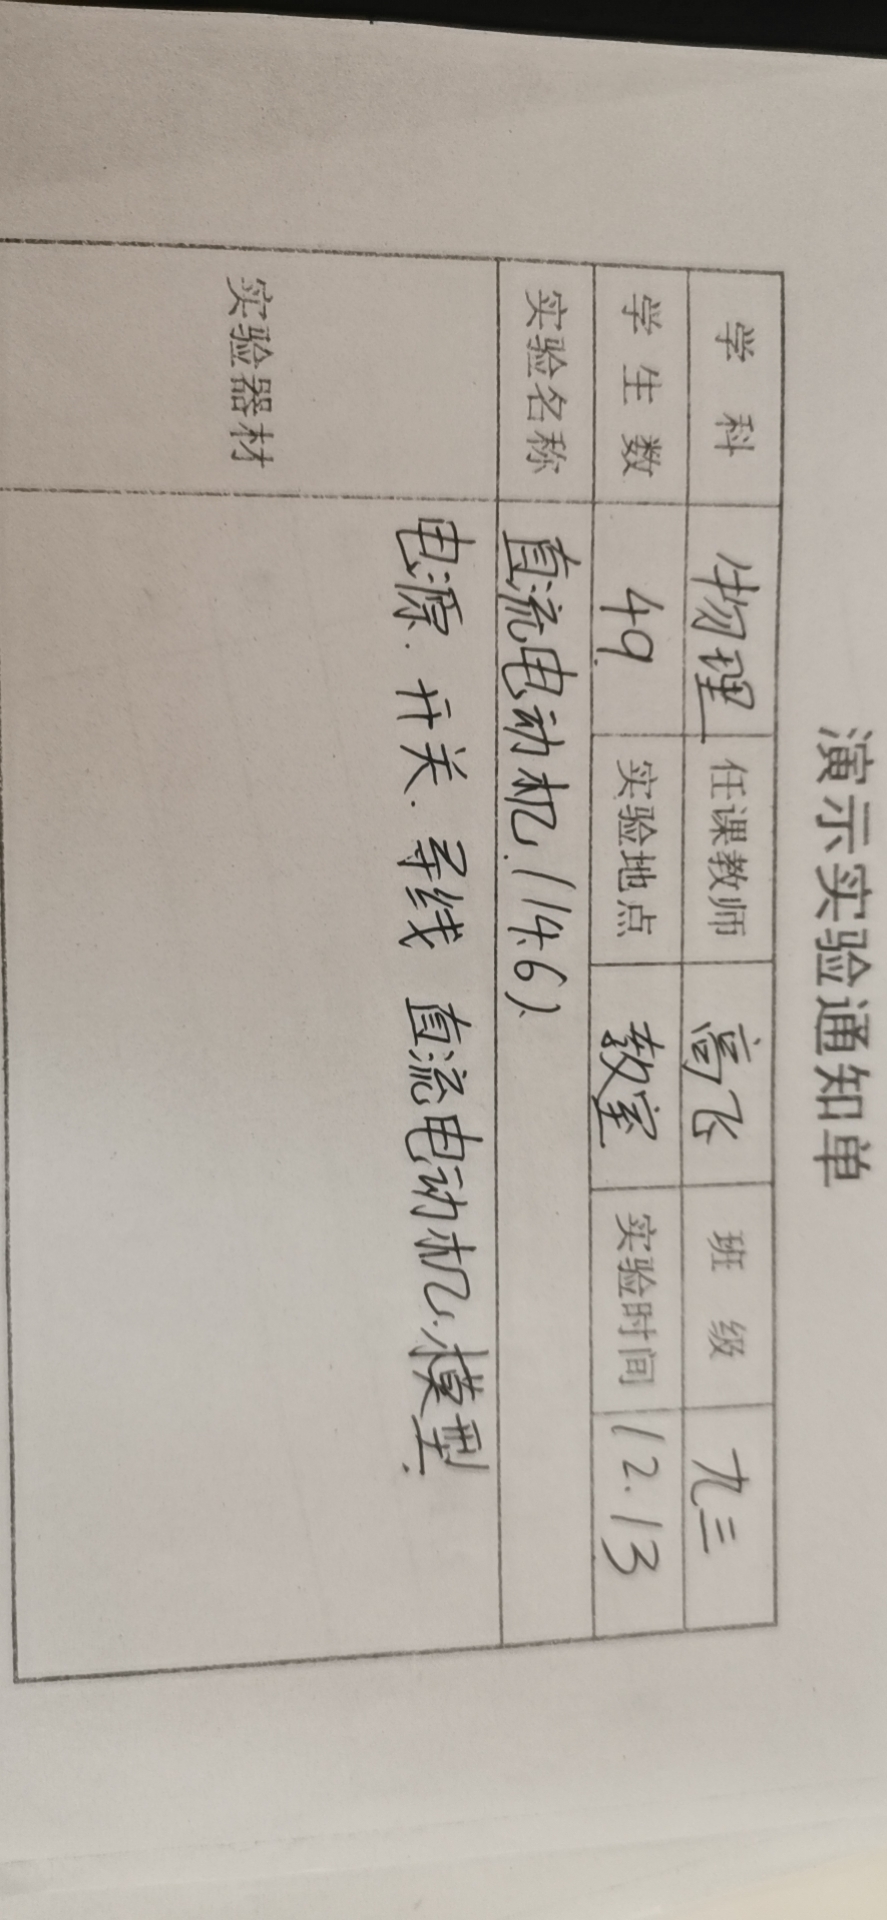 演示实验通知单
学科 物理 任课教师 高飞 班级 九三
学生数 49 实验地点 教室 实验时间 12.13
实验名称 直流电动机(14.6)
实验器材 电源.开关.导线 直流电动机.模型.